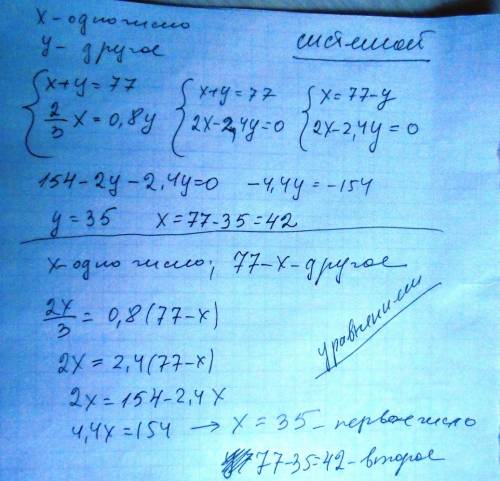 x - одно число
y - другое
системой
{ x+y=77 { x+y=77 { x=77-y
{ 2/3 x=0,8y { 2x-2,4y=0 { 2x-2,4y=0
154-2y-2,4y=0 -4,4y=-154
y=35 x=77-35=42
x-одно число; 77-x-другое
2x/3 = 0,8(77-x)
уравнением
2x=2,4(77-x)
2x=154-2,4x
4,4x=154 → x=35- первое число
77-35=42-второе